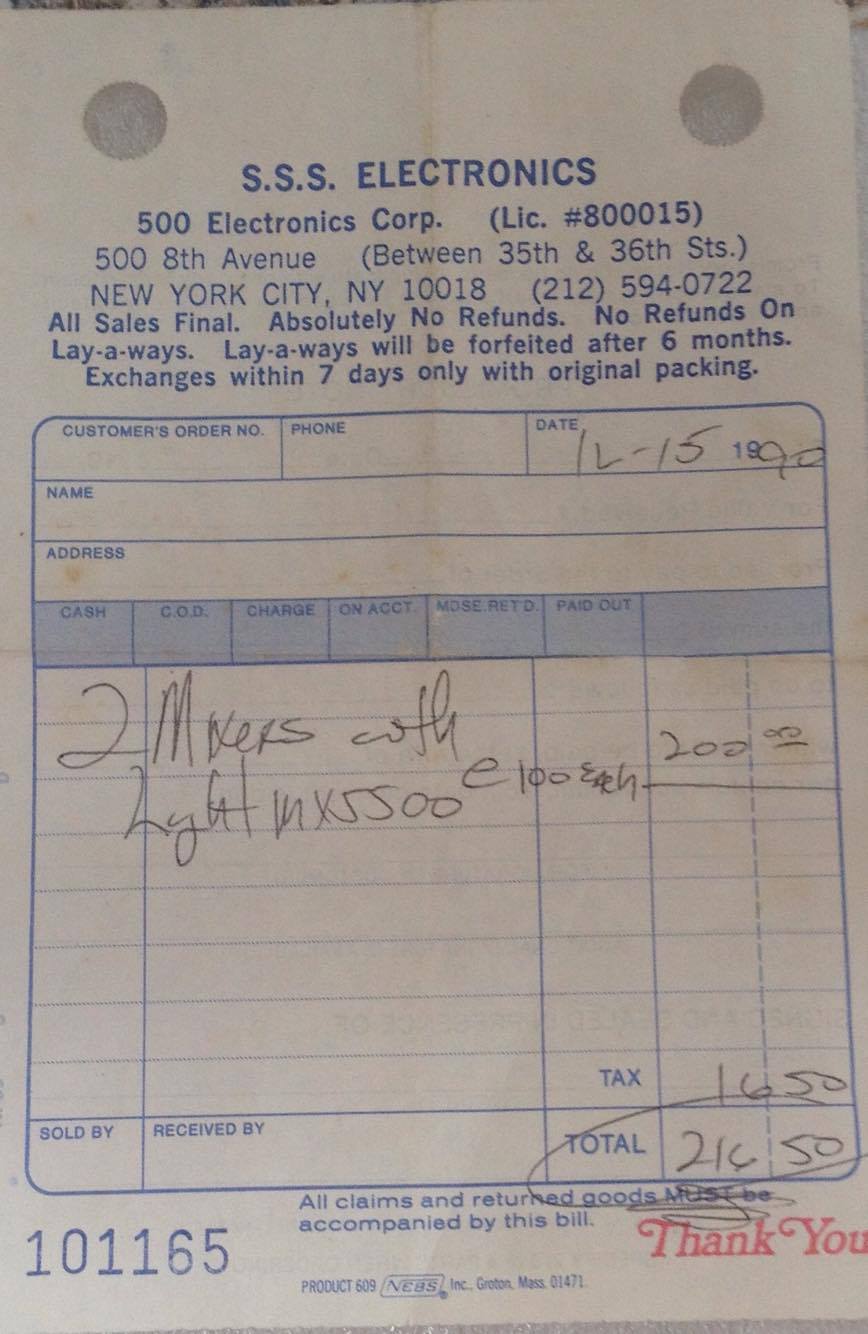 S.S.S. ELECTRONICS
500 Electronics Corp. (Lic. #800015)
500 8th Avenue (Between 35th & 36th Sts.)
NEW YORK CITY, NY 10018 (212) 594-0722
All Sales Final. Absolutely No Refunds. No Refunds On
Lay-a-ways. Lay-a-ways will be forfeited after 6 months.
Exchanges within 7 days only with original packing.
CUSTOMER'S ORDER NO. PHONE DATE 12-15 1990
NAME
ADDRESS
CASH C.O.D. CHARGE ON ACCT. MDSE. RET'D. PAID OUT
2 Mixers with 200 00
Light MX5500 @ 100 Each
TAX 16 50
SOLD BY RECEIVED BY TOTAL 216 50
All claims and returned goods MUST be
accompanied by this bill.
101165 Thank You
PRODUCT 609 NEBS Inc., Groton, Mass. 01471.